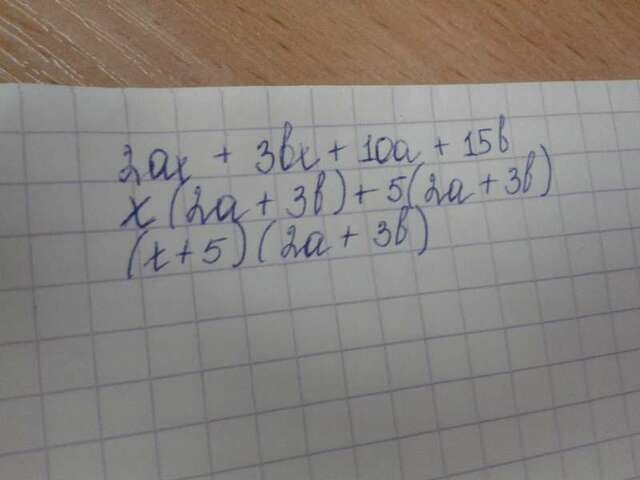 2ax + 3bx + 10a + 15b
x(2a + 3b) + 5(2a + 3b)
(x + 5)(2a + 3b)